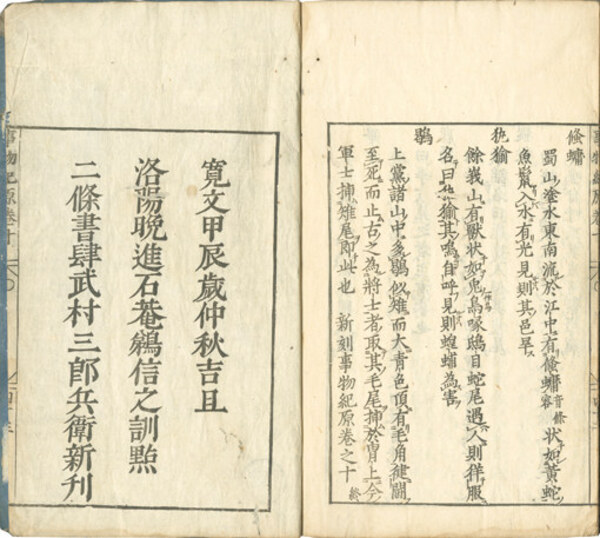 鯈䗤
蜀山淦水東南流於江中有鯈䗤音條容状如黃蛇
魚鬣入水有光見則其邑旱
犰狳
餘峩山有獸状如兎鳥喙鴟目蛇尾遇人則徉服
名曰犰狳其鳴自呼見則蝗為害
鶡
上黨諸山中多鶡似雉而大青色頂有毛角健鬪
至死而止古之為將士者取其毛尾挿於冑上今
軍士挿雉尾即此也 新刻事物紀原卷之十終
寛文甲辰歲仲秋吉且
洛陽晩進石菴鵜信之訓㸃
二條書肆武村三郎兵衛新刊
事物紀原卷十